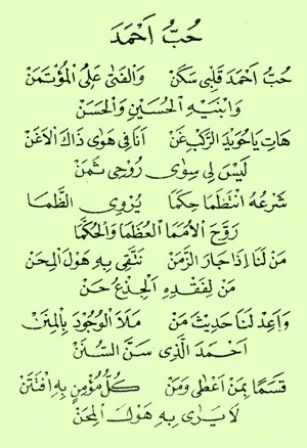 حُبُّ اَحْمَدَ
حُبُّ اَحْمَدَ قَلْبِي سَكَنْ وَالْفَتٰى عَلِىُّ الْمُؤْتَمَنْ
وَابْنَيْهِ الْحُسَيْنِ وَالْحَسَنْ
هَاتِ يَاحُوَيْدِ الرَّكْبِ غَنْ اَنَافِى هَوٰى ذَاكَ الْاَغَنْ
لَيْسَ لِى سِوٰى رُوْحِى ثَمَنْ
شَرْعُهُ انْتَظَمَا حِكَمَا يُرْوِى الظَّمَا
رَوَّحَ الْاُمَمَا الْعُظَمَا وَالْحُكَمَا
مَنْ لَنَا اِذَا جَارَ الزَّمَنْ نَتَّقِى بِهِ هَوْلَ الْمِحَنْ
مَنْ لِفَقْدِهِ الْجِذْعُ حَنْ
وَاَعِدْ لَنَا حَدِيْثَ مَنْ مَلَاَ الْوُجُوْدَ بِالْمِنَنْ
اَحْمَدَ الَّذِى سَنَّ السُّنَنْ
قَسَمًا بِمَنْ اَعْطٰى وَمَنْ كُلُّ مُؤْمِنٍ بِهِ افْتَتَنْ
لَا يَرٰى بِهِ هَوْلَ الْمِحَنْ